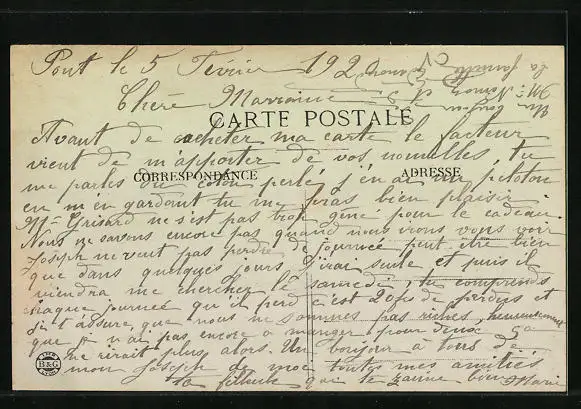 Pont le 5 Février 192
Chère Marraine
CARTE POSTALE
Avant de cacheter ma carte le facteur
vient de m'apporter de vos nouvelles, tu
CORRESPONDANCE
ADRESSE
me parles du coton perlé j'en ai un peloton
en m'en gardant tu me feras bien plaisir
Me Grisard ne s'est pas trop gêné pour le cadeau.
Nous ne savons encore pas quand nous irons vous voir
Joseph ne veut pas perdre de journée peut être bien
que dans quelques jours j'irai seule et puis il
viendra me chercher le samedi, tu comprends
chaque journée qu'il perd c'est 20f de perdus et
je t'assure que nous ne sommes pas riches, heureusement
que je n'ai pas encore à manger pour deux ça
ne rirait plus alors. Un bonjour à tous de
mon Joseph de moi toutes mes amitiés
ta filleule que te aime bien Marie
B&G
LYON
Un bonjour
la famille